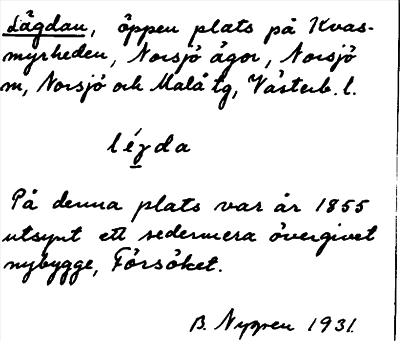 Lägdan, öppen plats på Kvas-
myrheden, Norsjö ägor, Norsjö
m, Norsjö och Malå tg, Västerb. l.
légda
På denna plats var år 1855
utsynt ett sedermera övergivet
nybygge, Försöket.
B. Nygren 1931.